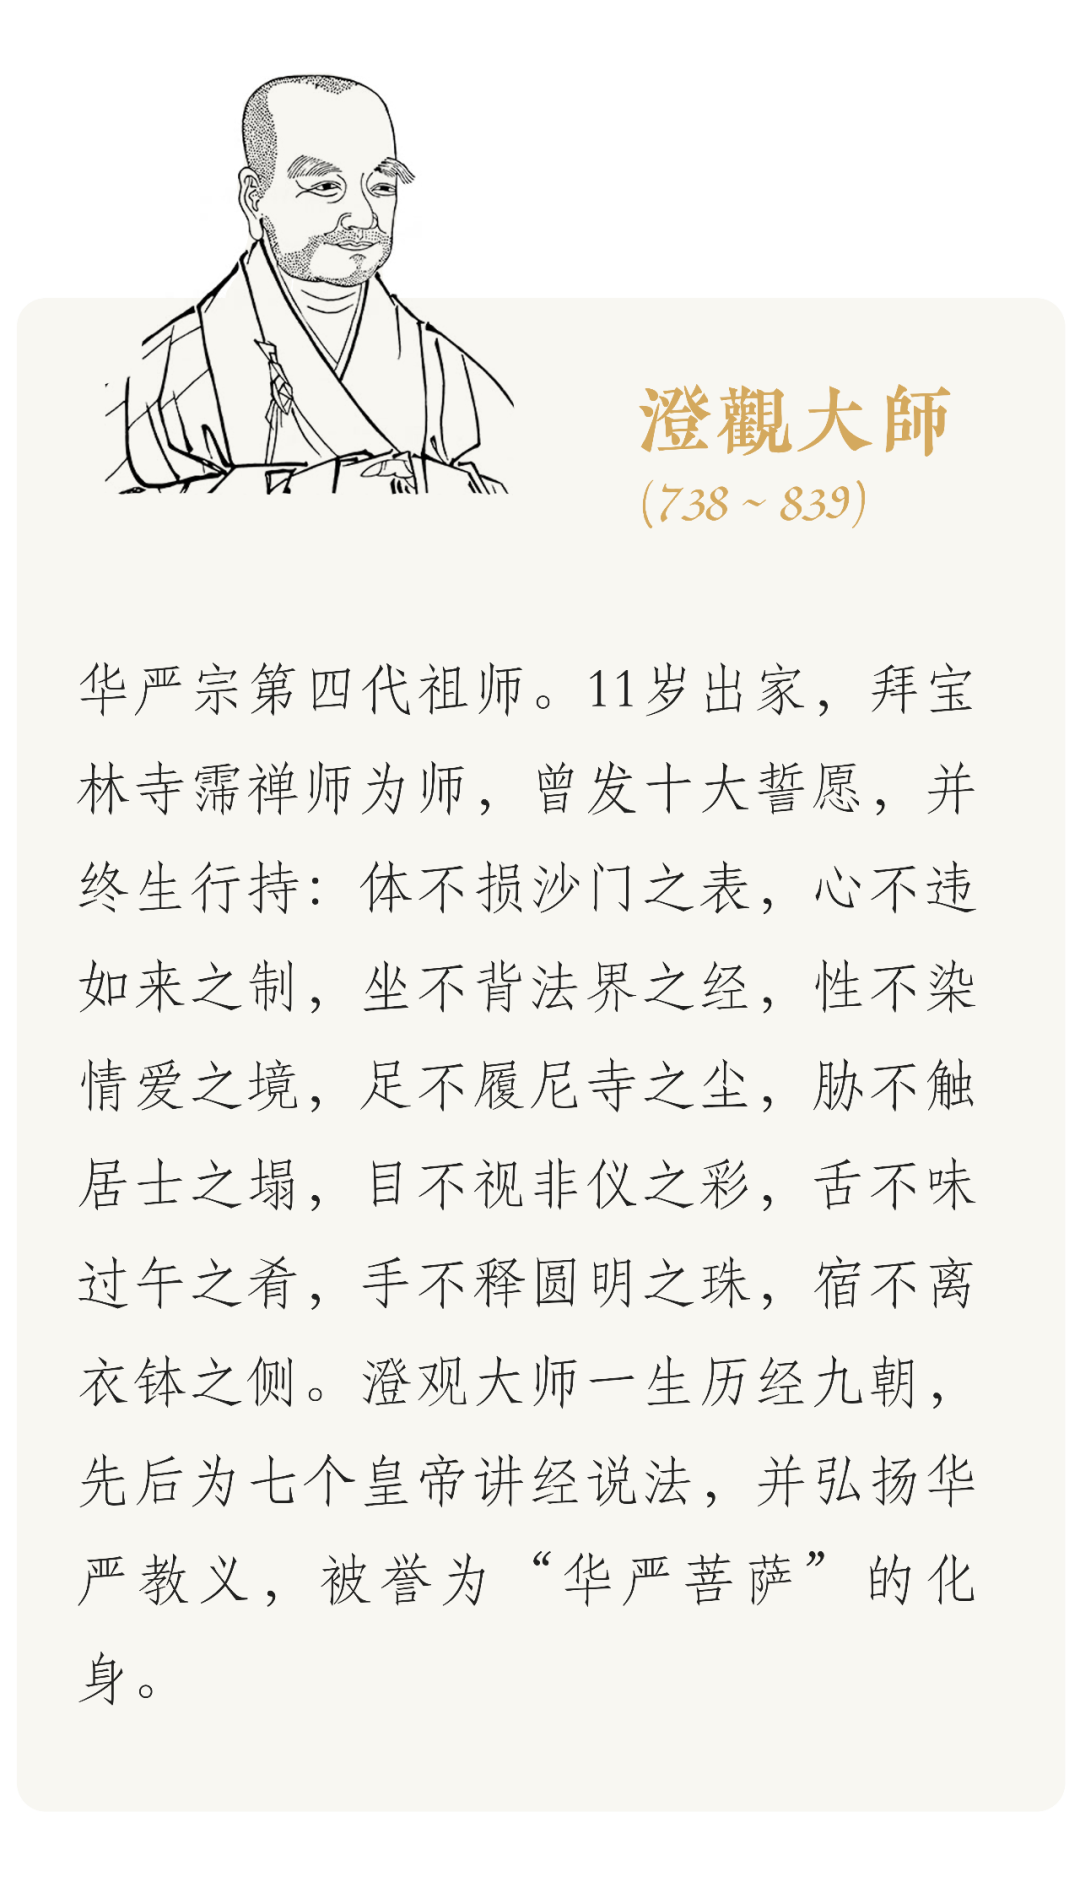 澄觀大師
(738 ~ 839)
华严宗第四代祖师。11岁出家，拜宝
林寺霈禅师为师，曾发十大誓愿，并
终生行持：体不损沙门之表，心不违
如来之制，坐不背法界之经，性不染
情爱之境，足不履尼寺之尘，胁不触
居士之塌，目不视非仪之彩，舌不味
过午之肴，手不释圆明之珠，宿不离
衣钵之侧。澄观大师一生历经九朝，
先后为七个皇帝讲经说法，并弘扬华
严教义，被誉为“华严菩萨”的化
身。